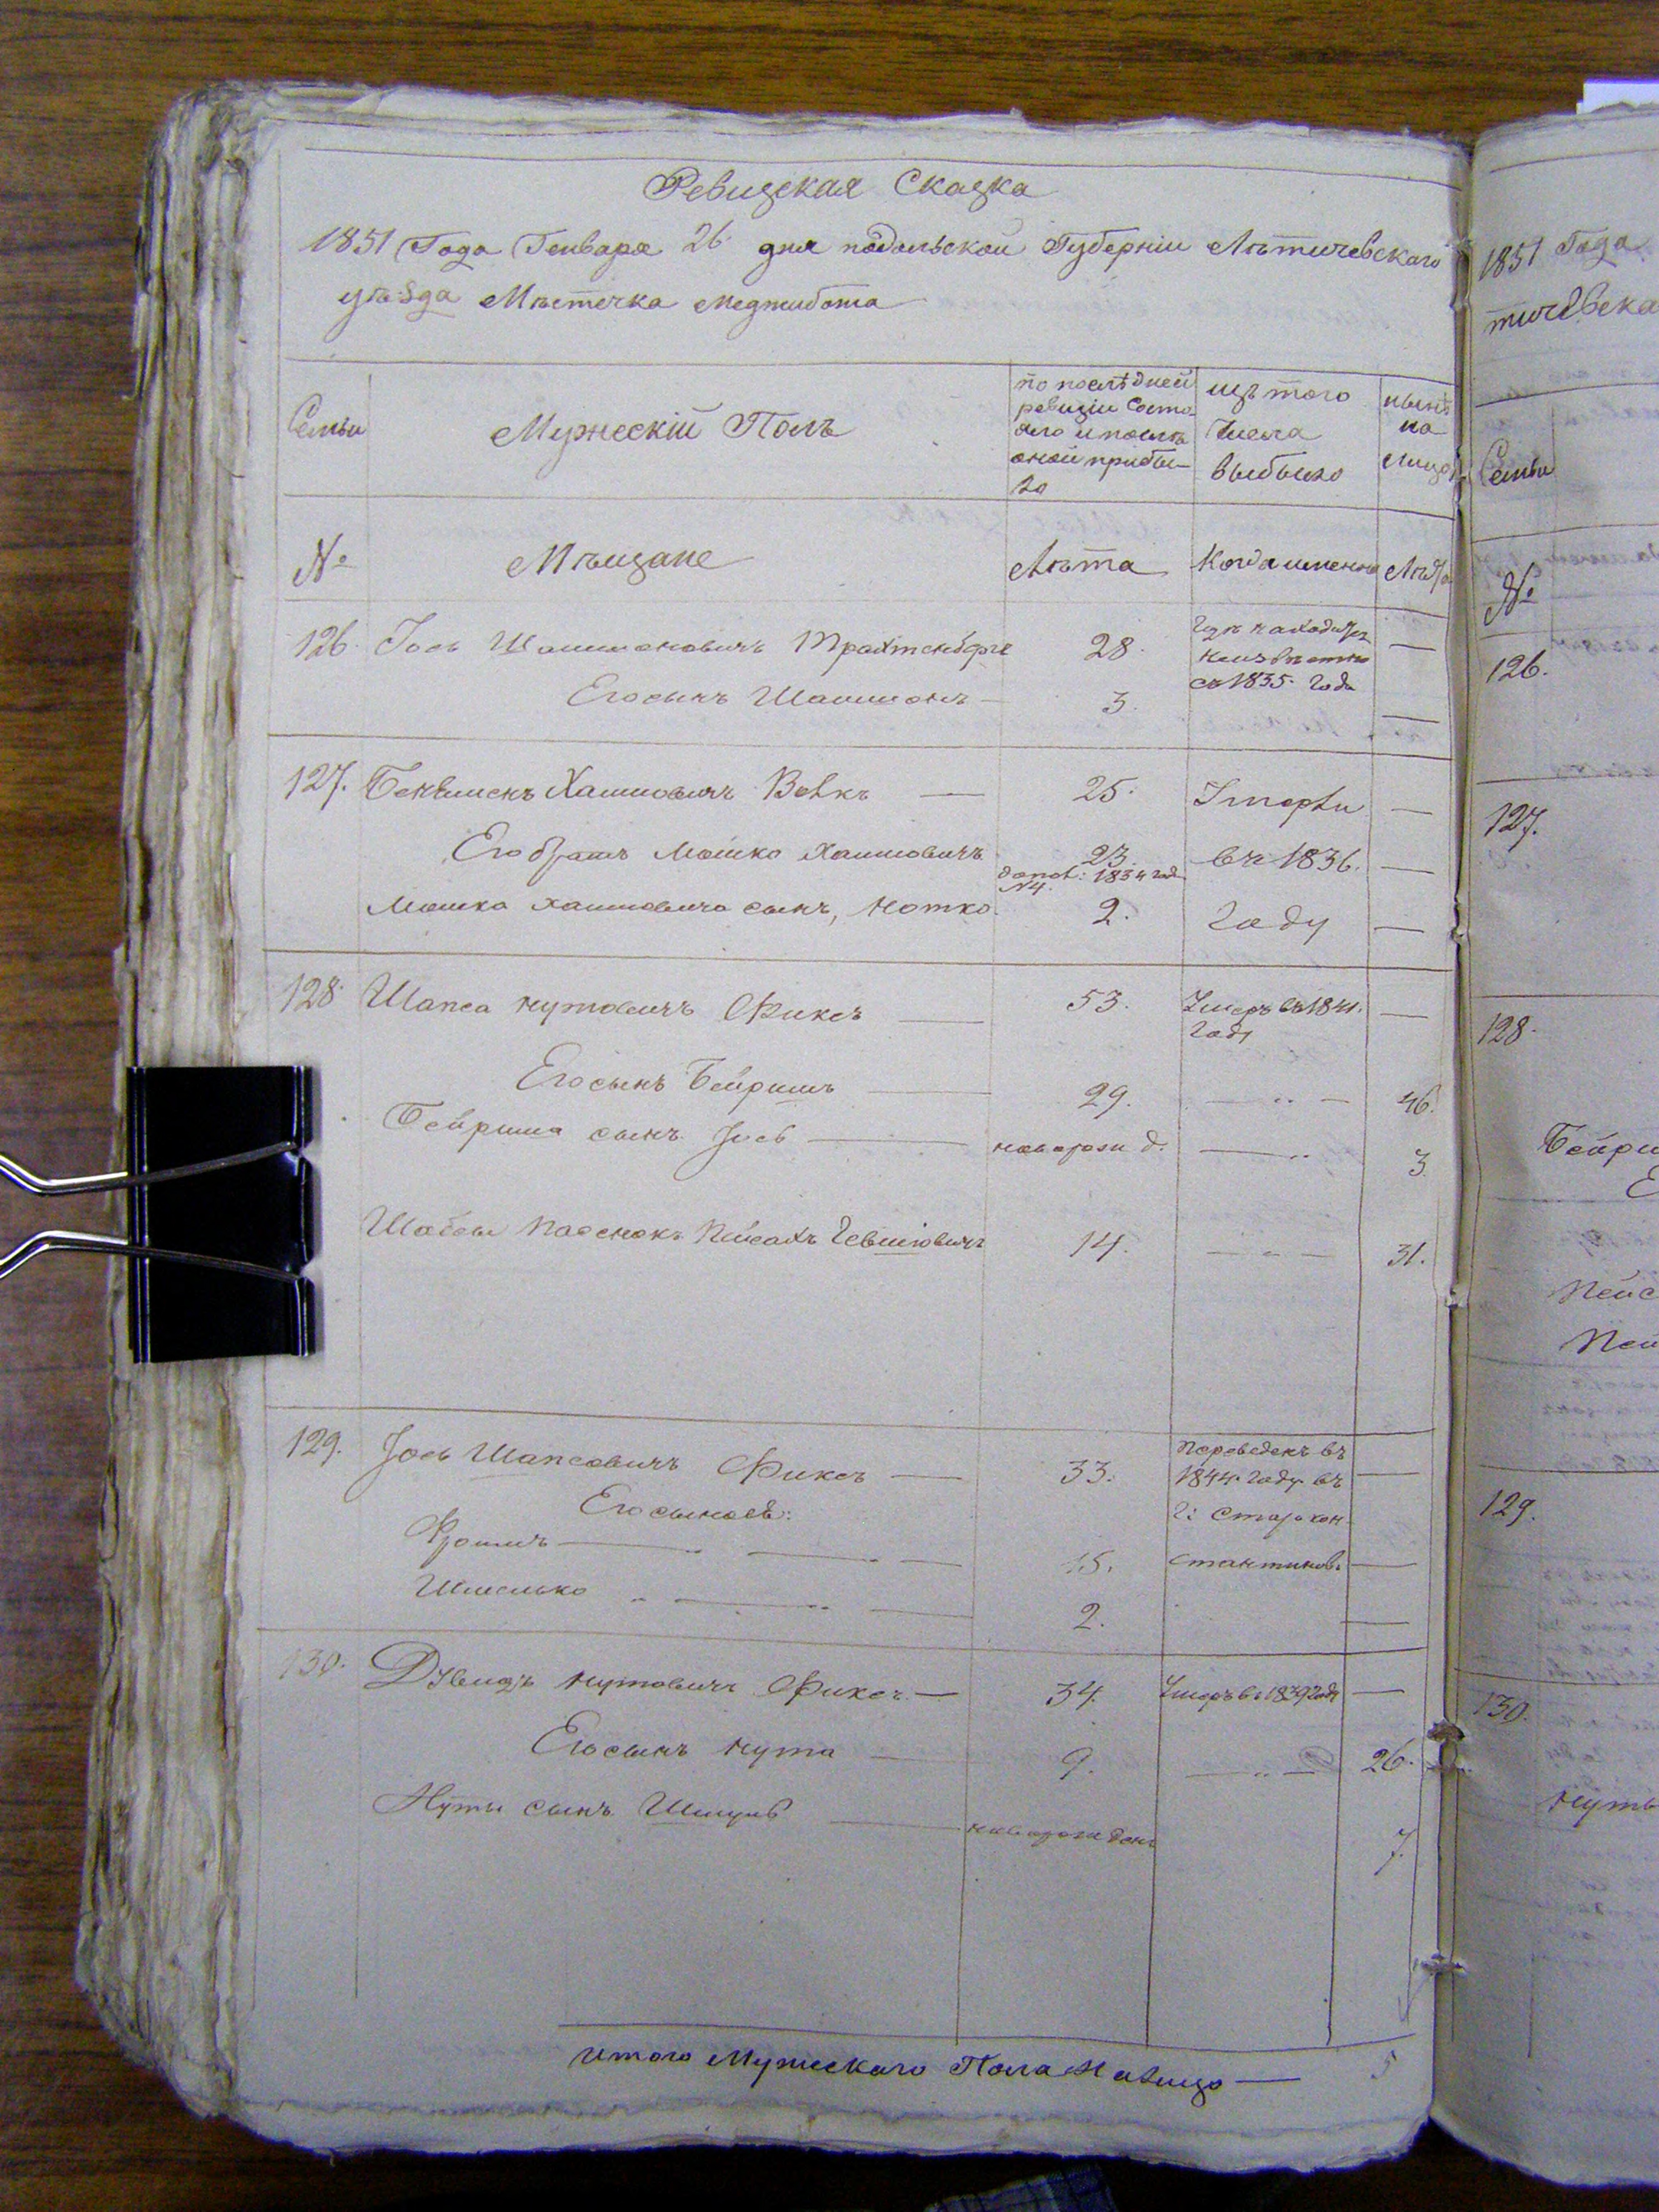 Ревизская Сказка
1851 Года Генваря 26 дня подольской Губерніи Лѣтичевскаго
уѣзда Мѣстечка Меджибожа
Семьи
Мужескій Полъ
по послѣдней
ревизіи состо-
яло и послѣ
оной прибы-
ло
изъ того
Числа
выбыло
нынѣ
на
лицо
№
Мѣщане
Лѣта
Когда именно
Лѣта
126. Іось Шлиомовичъ Трахтенберг 28. Гдѣ находится
неизвѣстно
съ 1835 года
Его сынъ 3.
127. Хаимовичъ Вовк 25. Умерли
Его братъ Мошко Хаимовичъ 23. въ 1836.
1834 год
№4.
Мошка Хаимовича сынъ, Нотко 2. Году
128. Шапса Нутовичъ Фиксъ 53. Умеръ въ 1841.
Году
Его сынъ Бейришъ 29. 46.
Бейриша сынъ Іось новорожд. 3.
Шабсы пасенокъ Пейсахъ 14. 31.
129. Іось Шапсовичъ Фиксъ 33. Переведенъ въ
1844 году въ
Г: Старокон-
стантиновъ
Его сыновья:
Фроимъ 15.
Шмелько 2.
130. Дувидъ Нутовичъ Фиксъ 34. Умеръ въ 1839 году
Его сынъ Нута 9. 26.
Нуты сынъ Шмуль новорожденъ 7.
Итого Мужескаго Пола На лицо 5
1851 Года
тичевска
Семьи
№
126.
127.
128.
Бейри
Пейс
Пей
129.
130.
Нуты